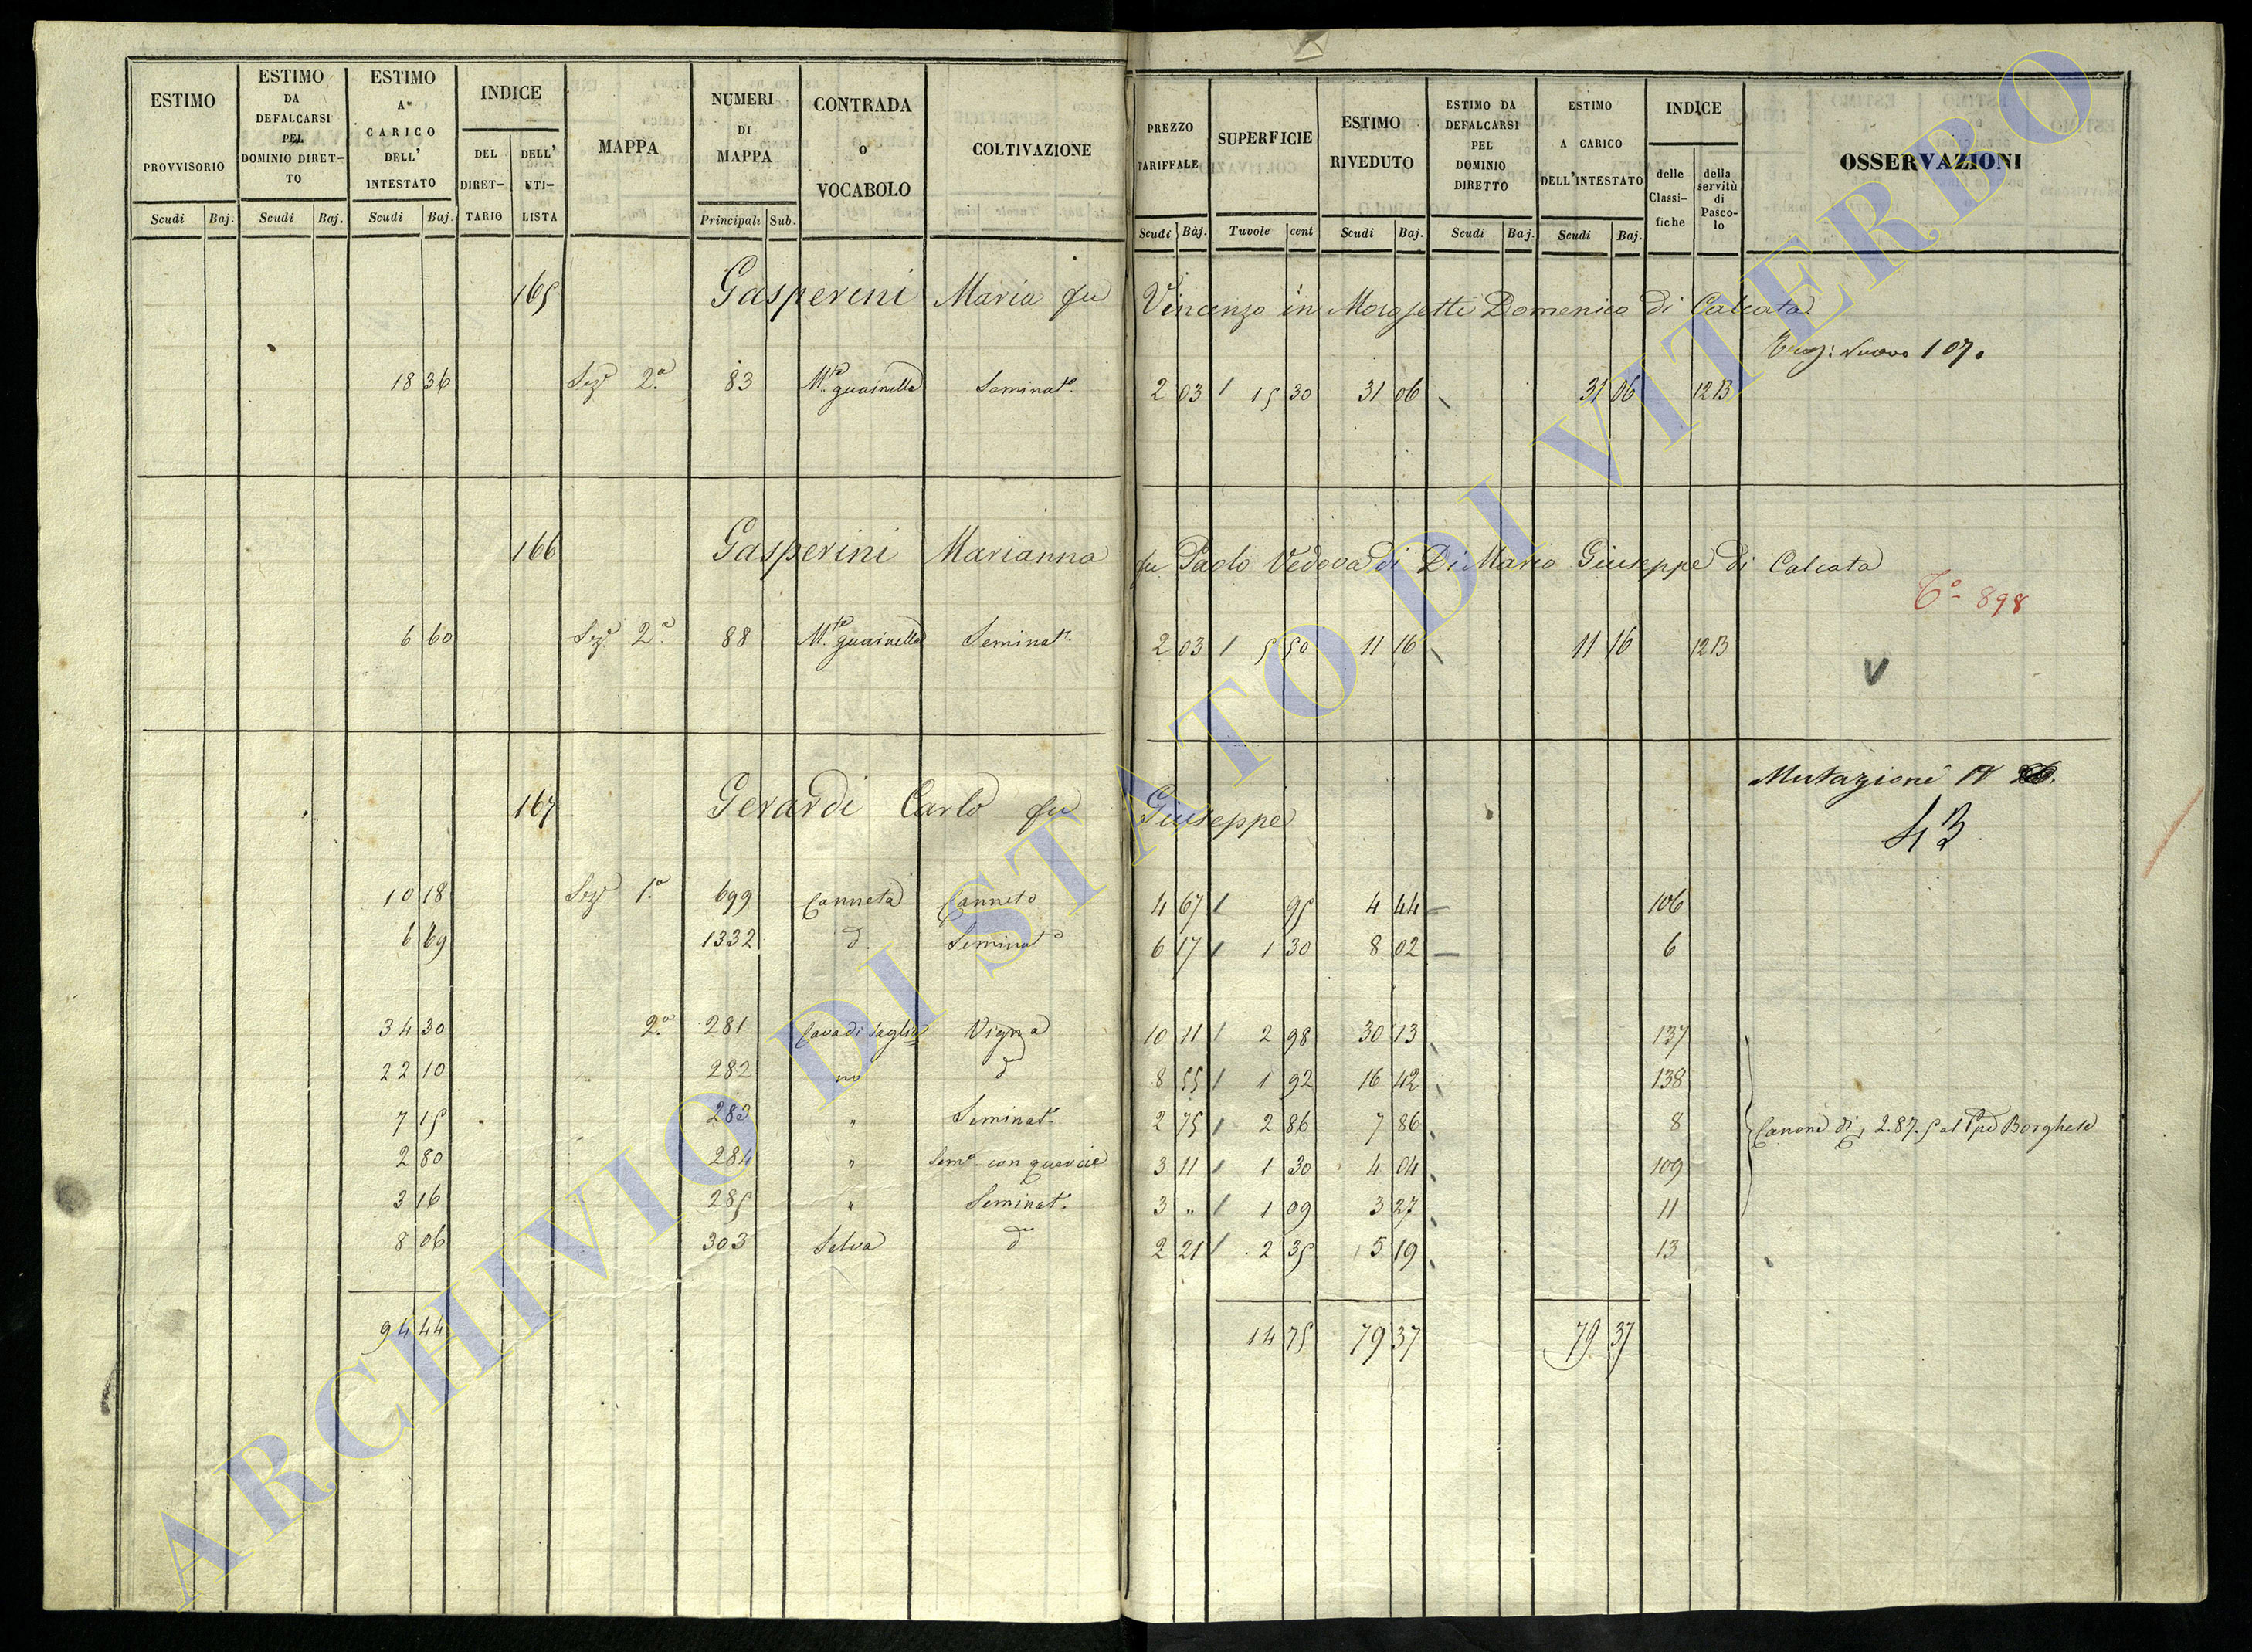 ESTIMO PROVVISORIO
Scudi Baj.
ESTIMO DA DEFALCARSI PEL DOMINIO DIRET-TO
Scudi Baj.
ESTIMO A CARICO DELL' INTESTATO
Scudi Baj.
INDICE
DEL DIRET-TARIO
DELL' UTI-LISTA
MAPPA
NUMERI DI MAPPA
Principali Sub.
CONTRADA O VOCABOLO
COLTIVAZIONE
PREZZO TARIFFALE
Scudi Baj.
SUPERFICIE
Tavole cent
ESTIMO RIVEDUTO
Scudi Baj.
ESTIMO DA DEFALCARSI PEL DOMINIO DIRETTO
Scudi Baj.
ESTIMO A CARICO DELL'INTESTATO
Scudi Baj.
INDICE
delle Classi-fiche
della servitù di Pasco-lo
OSSERVAZIONI
165 Gasperini Maria fu Vincenzo in Domenico di Calcata
Nuovo 107.
18 36 Sez.e 2.a 83 M.te guainella Seminat.o 2 03 15 30 31 06 31 06 12 13
166 Gasperini Marianna fu Paolo Vedova di Di Mario Giuseppe di Calcata
898
6 60 Sez.e 2.a 88 M.te guainella Seminat.o 2 03 5 50 11 16 11 16 12 13
V
167 Gerardi Carlo fu Giuseppe
Mutazione N
43
10 18 Sez.e 1.a 699 Canneta Canneto 4 67 95 4 44 106
6 69 1332 d. Seminat.o 6 17 1 30 8 02 6
34 30 2.a 281 Cava di Vigna 10 11 2 98 30 13 137
22 10 282 d 8 55 1 92 16 42 138
7 15 283 " Seminat.o 2 75 2 86 7 86 8 Canone di 2.87.5 al Borghese
2 80 284 " Sem.o con quercie 3 11 1 30 4 04 109
3 16 285 " Seminat.o 3 " 1 09 3 27 11
8 06 303 Selva d 2 21 2 35 5 19 13
94 44 14 75 79 37 79 37
ARCHIVIO DI STATO DI VITERBO